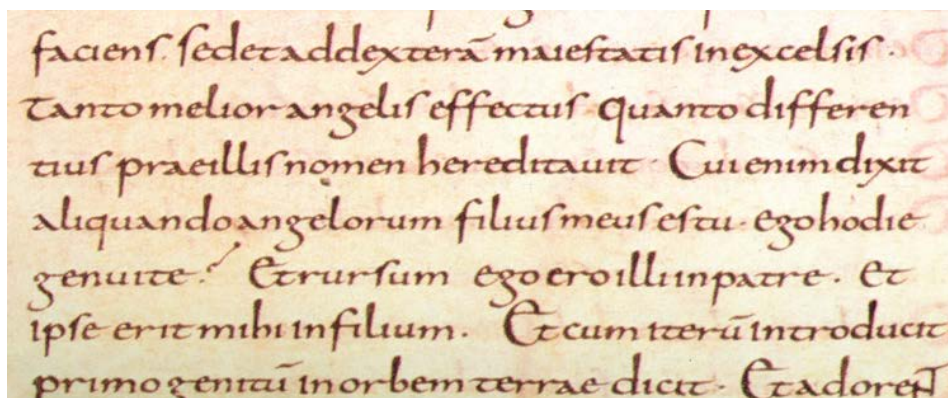 faciens. sedetaddexterā maiestatis inexcelsis ·
Tanto melior angelis effectus · quanto differen
tius praeillis nomen hereditauit · Cui enim dixit
aliquando angelorum filius meus es tu · ego hodie
genui te? Et rursum ego ero illi in patre · et
ipse erit mihi in filium · Et cum iterū introducit
primogenitū in orbem terrae dicit · Et adorent